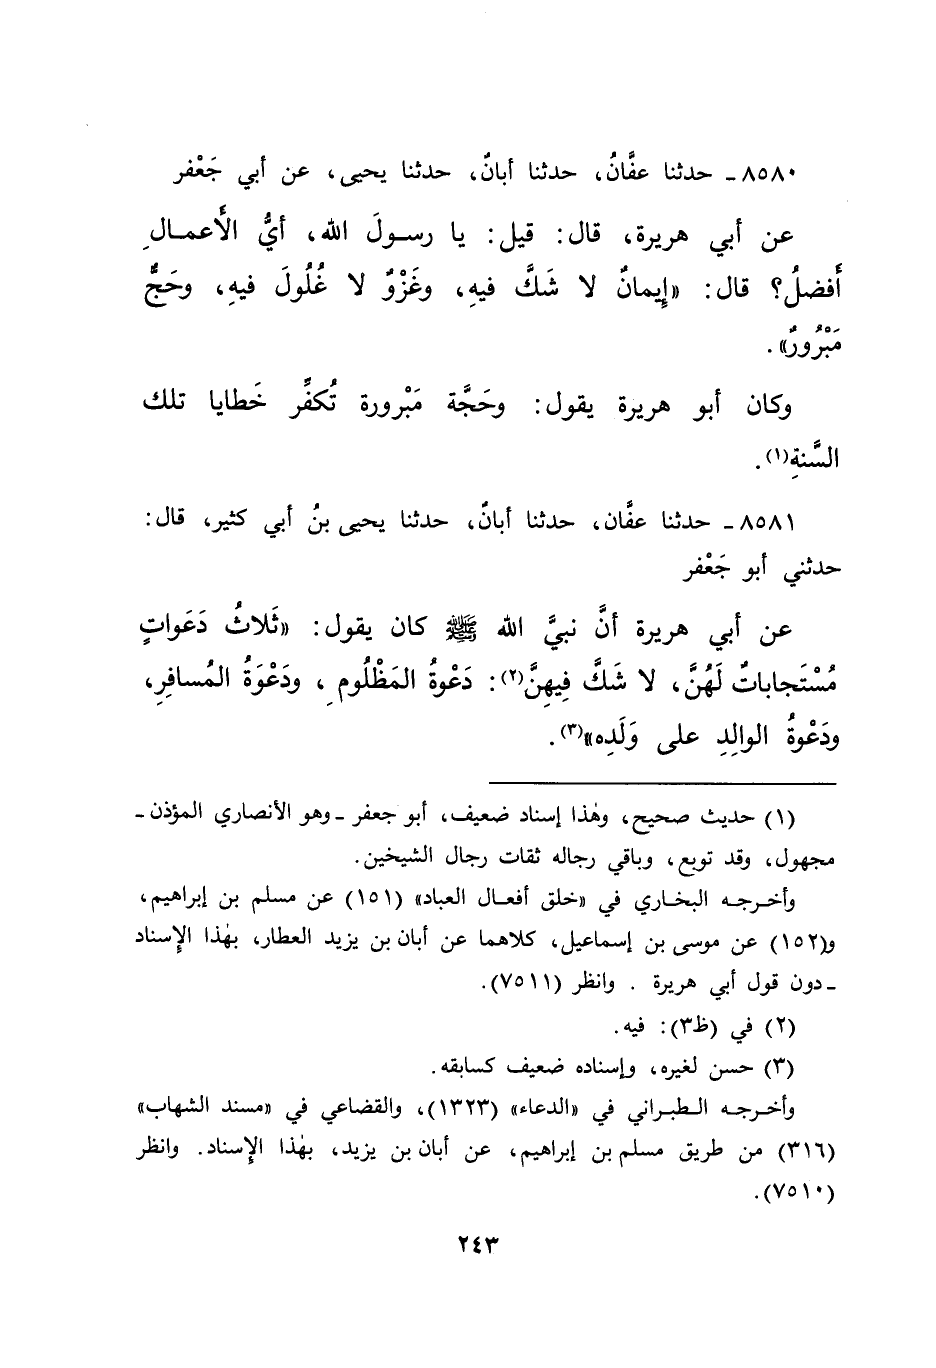 ٨٥٨٠ـ حدثنا عفَّانُ، حدثنا أبانٌ، حدثنا يحيى، عن أبي جَعْفر
عن أبي هريرة، قال: قيل: يا رسولَ الله، أيُّ الأَعمـالِ
أَفضلُ؟ قال: «إِيمانٌ لا شَكَّ فيهِ، وغَزْوٌ لا غُلُولَ فيهِ، وحَجٌّ
مَبْرُورٌ».
وكان أبو هريرة يقول: وحَجَّة مَبْرورة تُكفِّر خَطايا تلك
السَّنةِ(١).
٨٥٨١ـ حدثنا عفَّان، حدثنا أبانٌ، حدثنا يحيى بنُ أبي كثير، قال:
حدثني أبو جَعْفر
عن أبي هريرة أنَّ نبيَّ الله ﷺ كان يقول: «ثَلاثُ دَعَواتٍ
مُسْتَجاباتٌ لَهُنَّ، لا شَكَّ فِيهِنَّ(٢): دَعْوةُ المَظْلُومِ، ودَعْوَةُ المُسافرِ،
ودَعْوةُ الوالِدِ على وَلَدِه»(٣).
(١) حديث صحيح، وهٰذا إسناد ضعيف، أبو جعفر ـ وهو الأنصاري المؤذن ـ
مجهول، وقد توبع، وباقي رجاله ثقات رجال الشيخين.
وأخرجه البخاري في «خلق أفعال العباد» (١٥١) عن مسلم بن إبراهيم،
و(١٥٢) عن موسى بن إسماعيل، كلاهما عن أبان بن يزيد العطار، بهٰذا الإسناد
ـ دون قول أبي هريرة . وانظر (٧٥١١).
(٢) في (ظ٣): فيه.
(٣) حسن لغيره، وإسناده ضعيف كسابقه.
وأخرجه الطبراني في «الدعاء» (١٣٢٣)، والقضاعي في «مسند الشهاب»
(٣١٦) من طريق مسلم بن إبراهيم، عن أبان بن يزيد، بهٰذا الإسناد. وانظر
(٧٥١٠).
٢٤٣